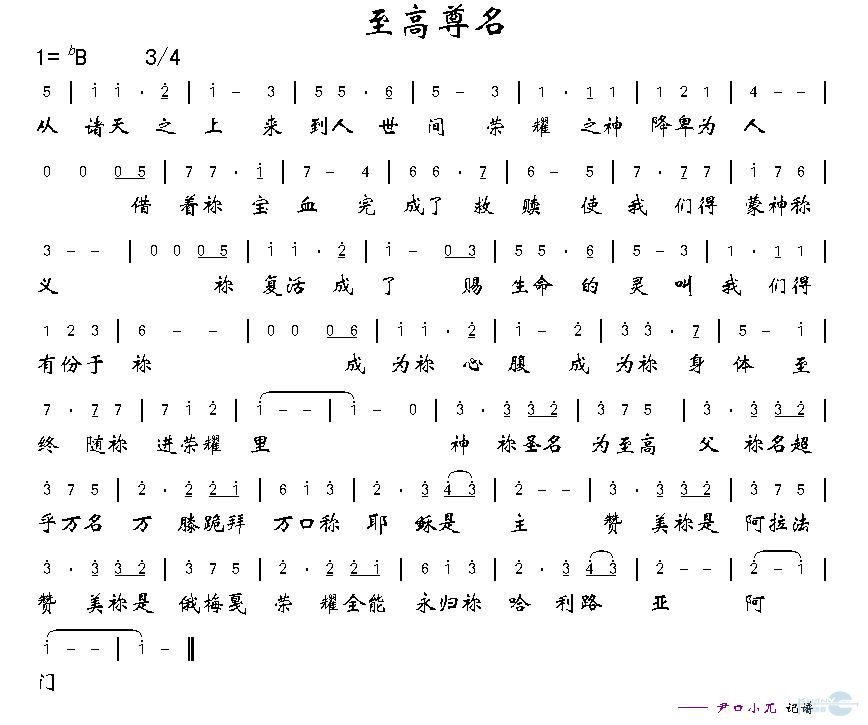 至高尊名
1= ᵇB 3/4
5 | i̇ i̇ · 2̇ | i̇ – 3 | 5 5 · 6 | 5 – 3 | 1 · 1 1 | 1 2 1 | 4 – – |
从 诸天 之 上 来 到人 世 间 荣 耀 之神 降卑为 人
0 0 0 5 | 7 7 · i̇ | 7 – 4 | 6 6 · 7 | 6 – 5 | 7 · 7 7 | i̇ 7 6 |
借 着祢 宝 血 完 成了 救 赎 使 我 们得 蒙神称
3 – – | 0 0 0 5 | i̇ i̇ · 2̇ | i̇ – 0 3 | 5 5 · 6 | 5 – 3 | 1 · 1 1 |
义 祢 复活 成 了 赐 生命 的 灵 叫 我 们得
1 2 3 | 6 – – | 0 0 0 6 | i̇ i̇ · 2̇ | i̇ – 2̇ | 3̇ 3̇ · 7 | 5 – i̇ |
有份于 祢 成 为祢 心 腹 成 为祢 身 体 至
7 · 7 7 | 7 i̇ 2̇ | i̇ – – | i̇ – 0 | 3̇ · 3̇ 3̇ 2̇ | 3̇ 7 5 | 3̇ · 3̇ 3̇ 2̇ |
终 随祢 进荣耀 里 神 祢圣名 为至高 父 祢名超
3̇ 7 5 | 2̇ · 2̇ 2̇ i̇ | 6 i̇ 3̇ | 2̇ · 3̇ 4̇ 3̇ | 2̇ – – | 3̇ · 3̇ 3̇ 2̇ | 3̇ 7 5 |
乎万名 万 膝跪拜 万口祢 耶 稣是 主 赞 美祢是 阿拉法
3̇ · 3̇ 3̇ 2̇ | 3̇ 7 5 | 2̇ · 2̇ 2̇ i̇ | 6 i̇ 3̇ | 2̇ · 3̇ 4̇ 3̇ | 2̇ – – | 2̇ – i̇ |
赞 美祢是 俄梅戛 荣 耀全能 永归祢 哈 利路 亚 阿
i̇ – – | i̇ – ‖
门
—— 尹口小兀 记谱